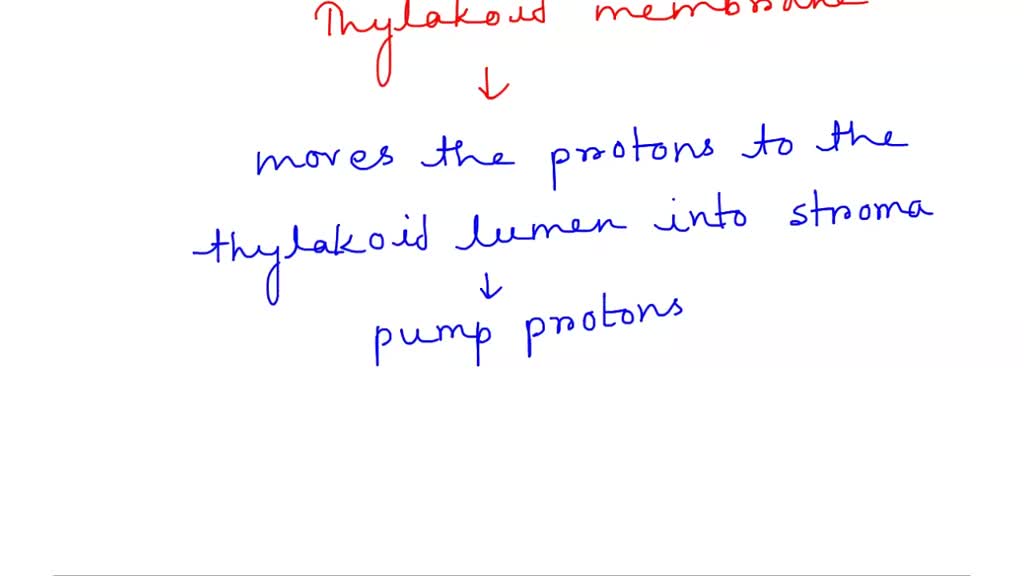 Thylakoid membrane
↓
moves the protons to the
thylakoid lumen into stroma
↓
pump protons